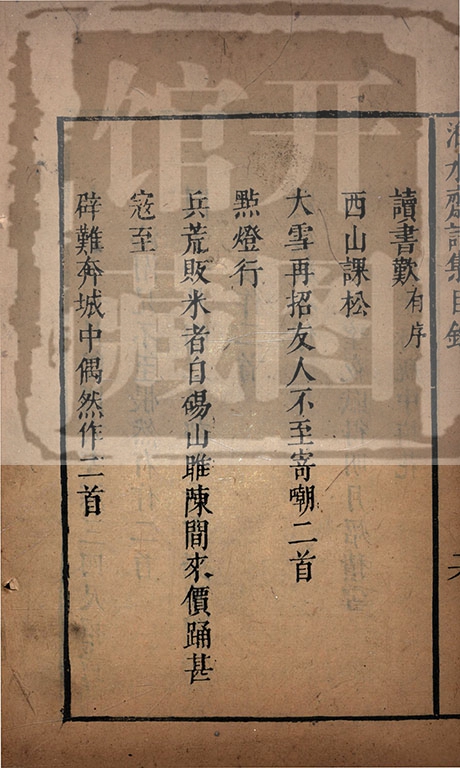 齋詩集目錄
讀書歎有序
西山課松
大雪再招友人不至寄嘲二首
點燈行
兵荒販米者自碭山睢陳間來價踊甚
寇至
辟難奔城中偶然作二首
开图
馆藏